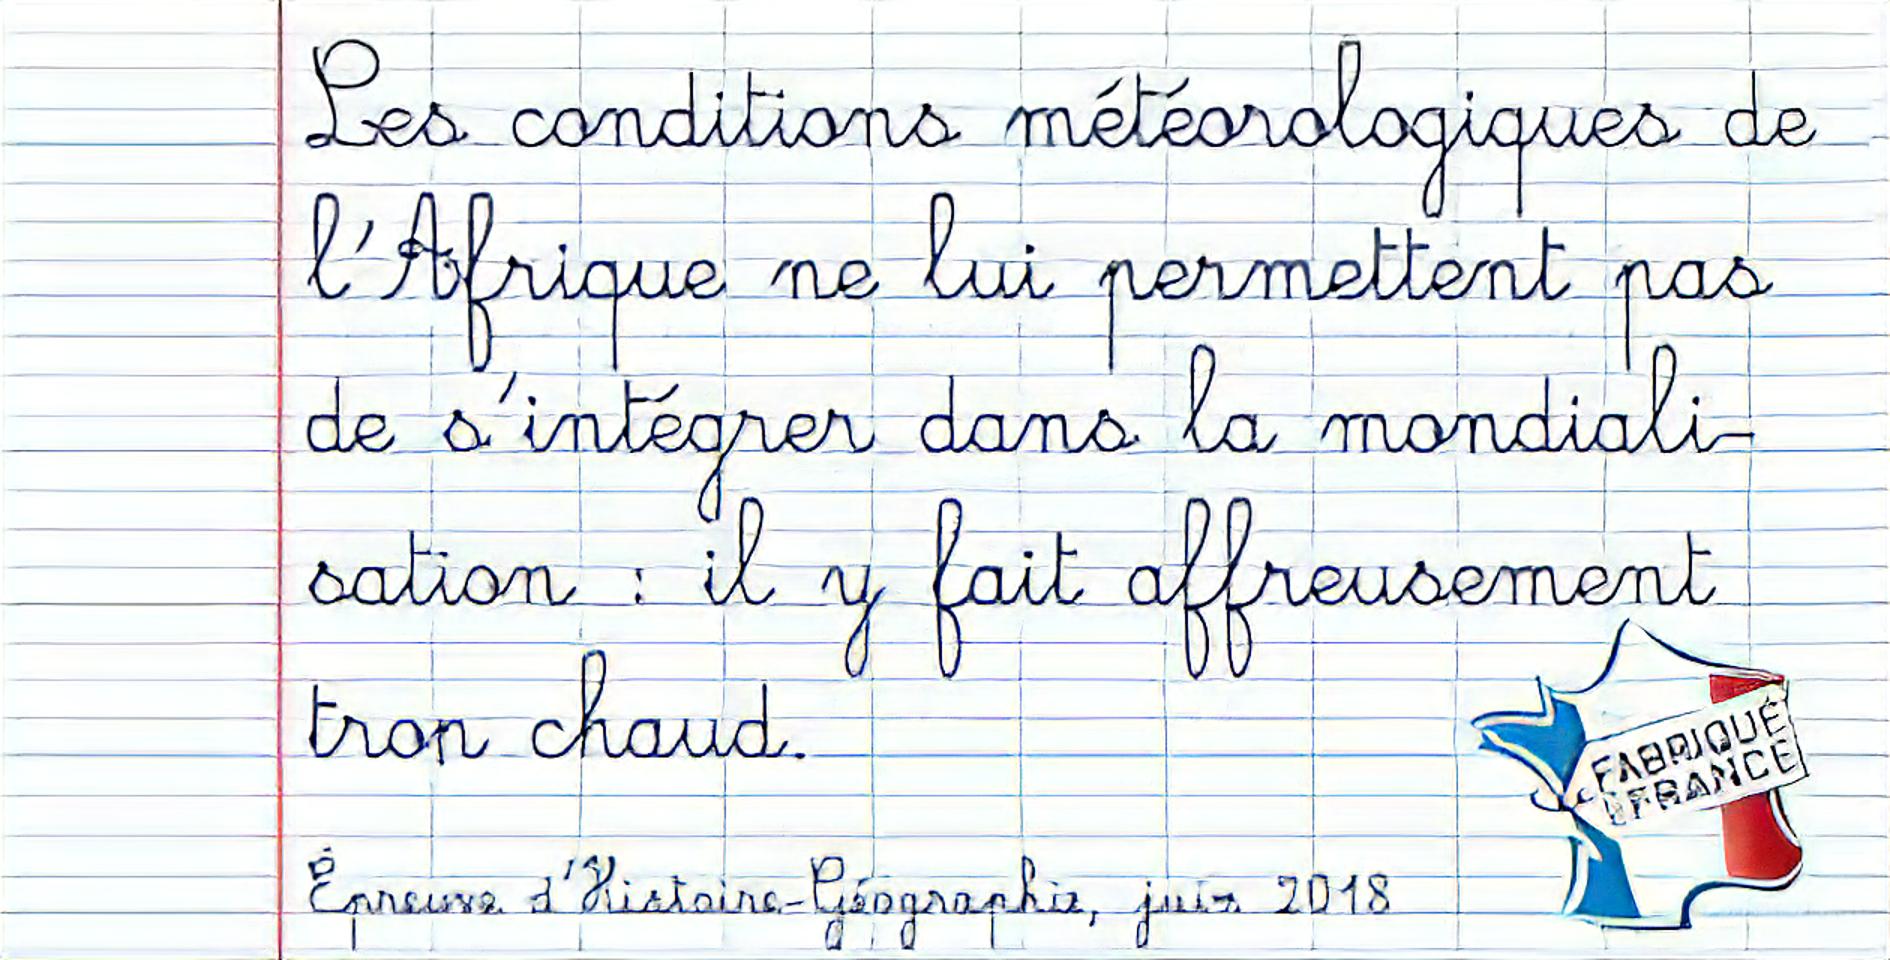 Les conditions météorologiques de
l'Afrique ne lui permettent pas
de s'intégrer dans la mondiali-
sation : il y fait affreusement
trop chaud.
Épreuve d'Histoire-Géographie, juin 2018
FABRIQUÉ
FRANCE